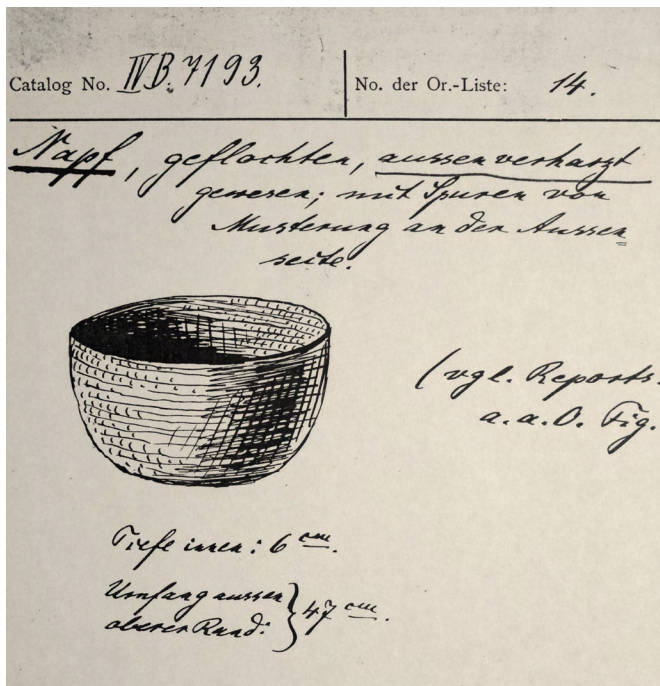 Catalog No. IV B. 7193.
No. der Or.-Liste: 14.
Napf, geflochten, aussen verharzt
gewesen; mit Spuren von
Musterung an der Aussen
seite.
(vgl. Reports.
a. a. O. Fig.
Tiefe innen: 6 cm.
Umfang aussen
oberer Rand:
47 cm.